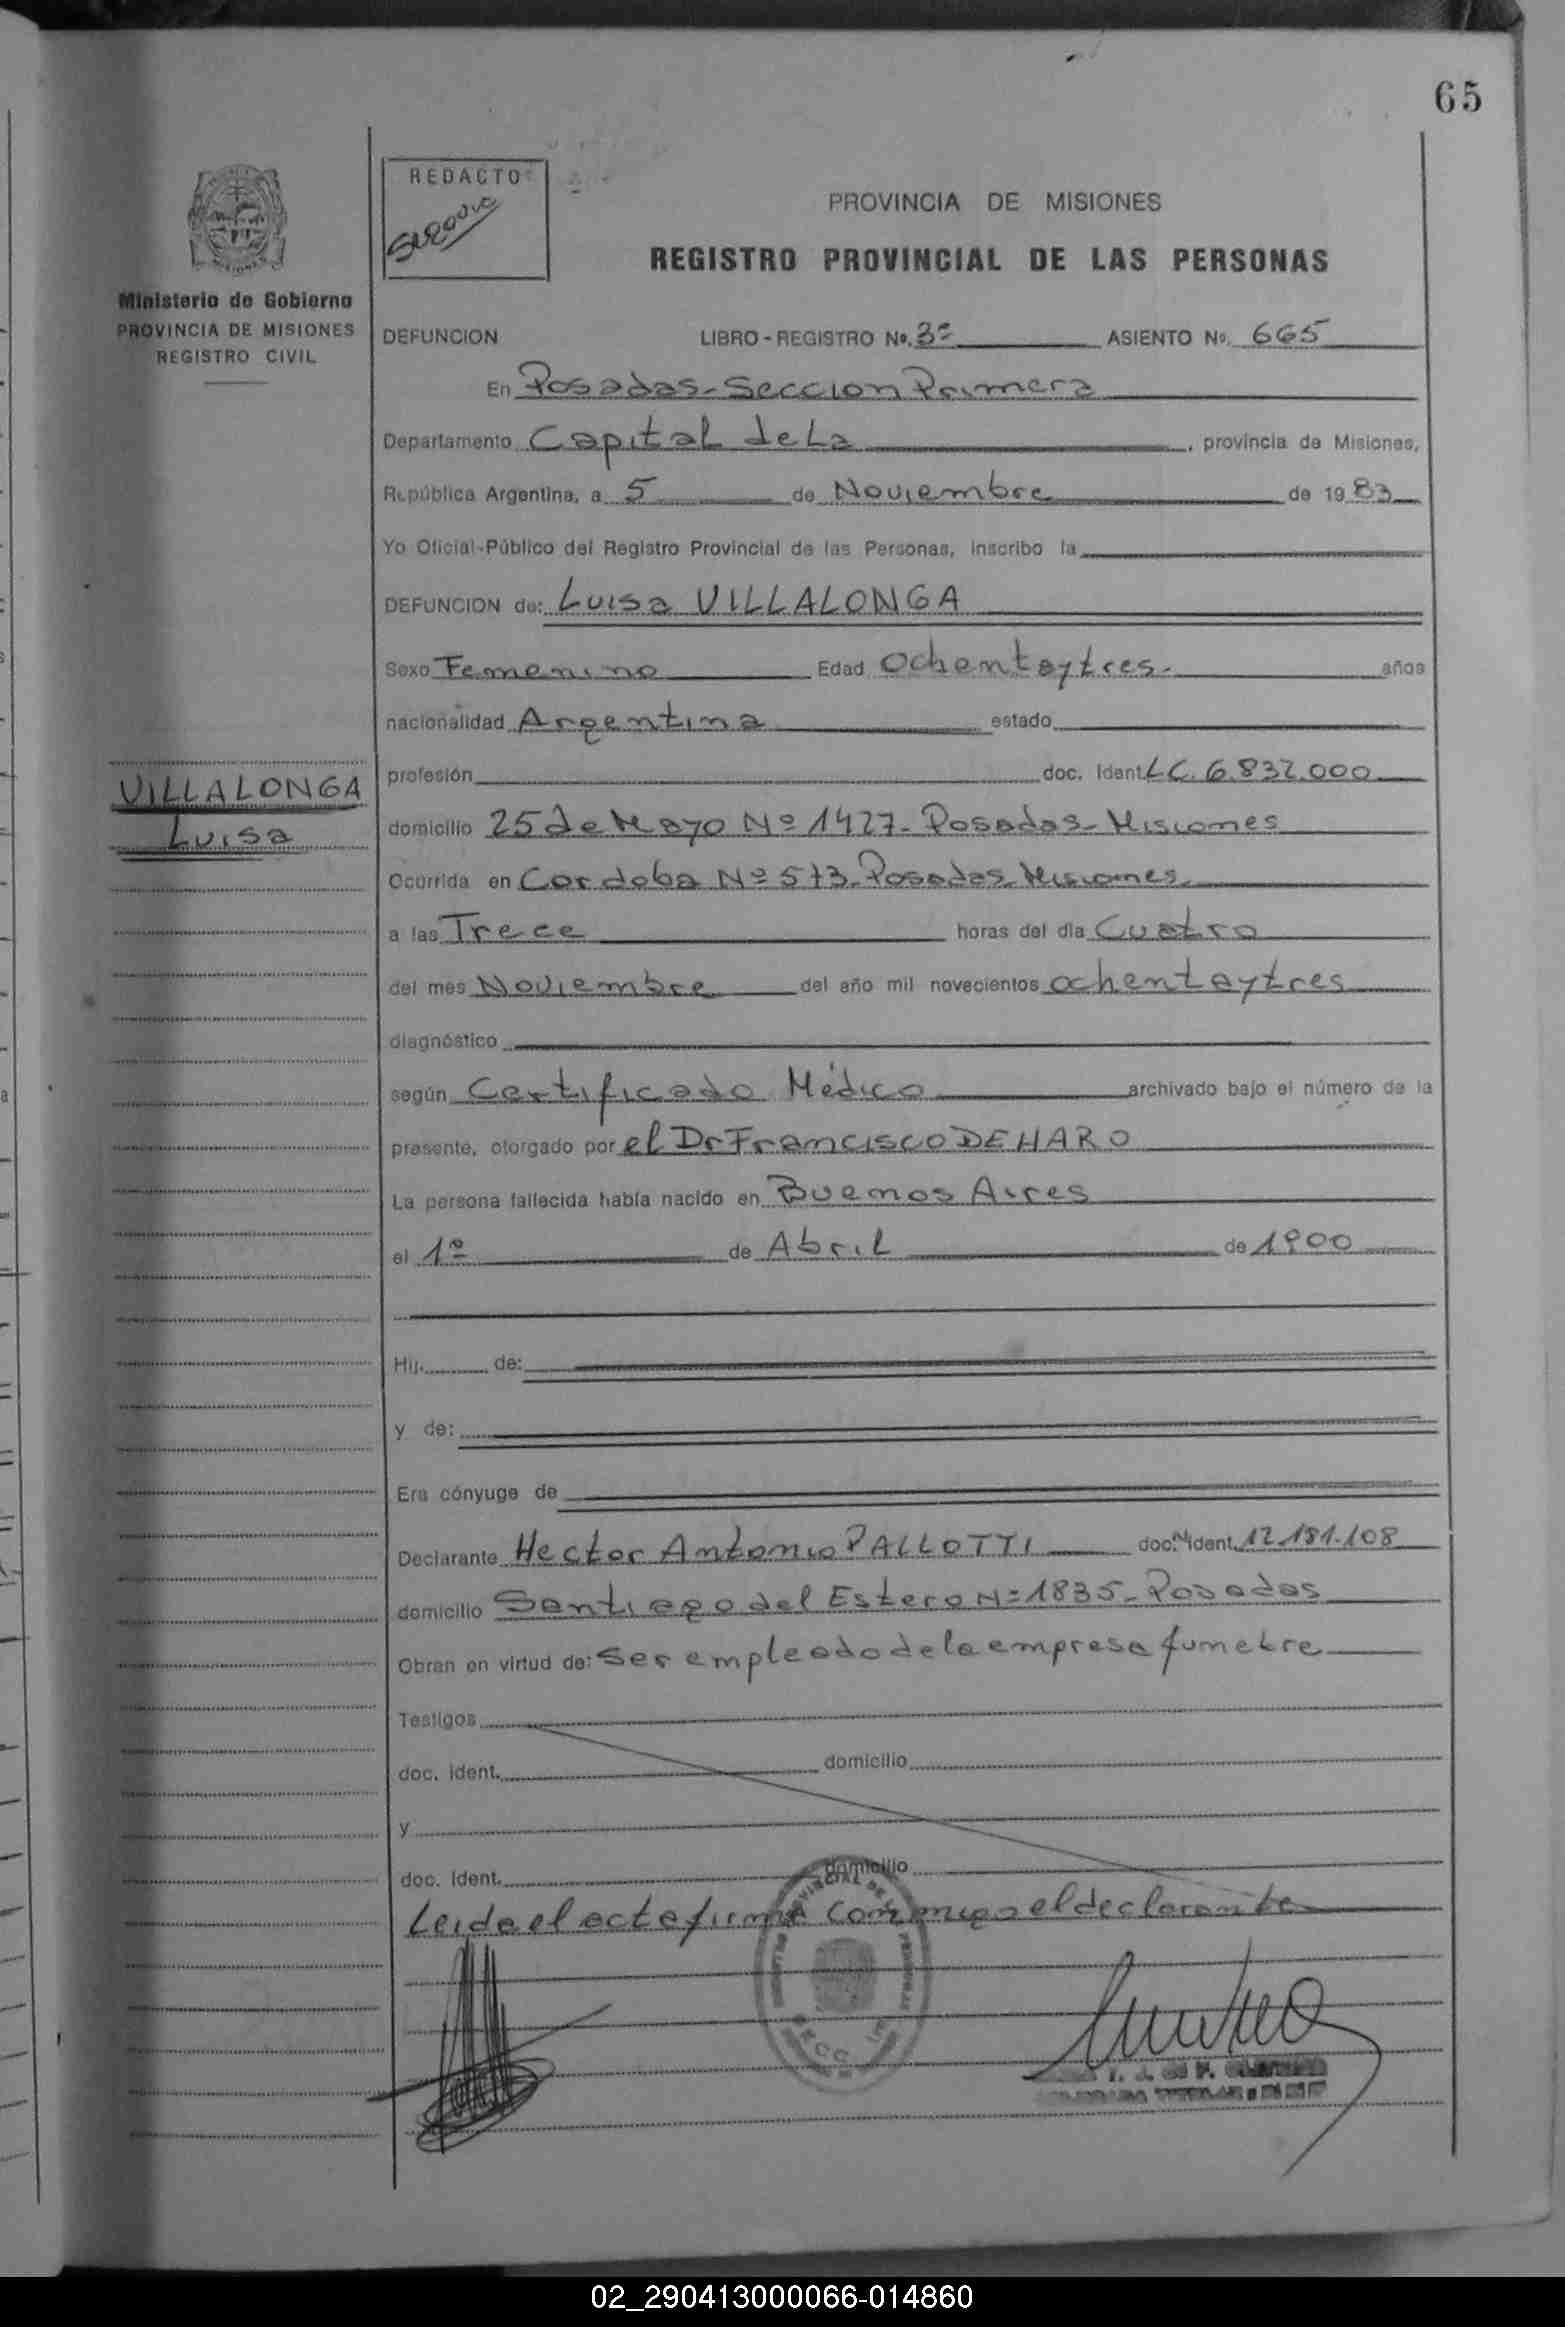 65
REDACTO
PROVINCIA DE MISIONES
REGISTRO PROVINCIAL DE LAS PERSONAS
MISIONES
Ministerio de Gobierno
PROVINCIA DE MISIONES
REGISTRO CIVIL
DEFUNCION LIBRO - REGISTRO Nº. 3º ASIENTO Nº. 665
En Posadas - Seccion Primera
Departamento Capital de La , provincia de Misiones,
República Argentina, a 5 de Noviembre de 1983
Yo Oficial-Público del Registro Provincial de las Personas, inscribo la
DEFUNCION de: Luisa VILLALONGA
Sexo Femenino Edad Ochenta y tres años
nacionalidad Argentina estado
VILLALONGA
Luisa
profesión doc. Ident. LC. 6.832.000
domicilio 25 de Mayo Nº 1427 - Posadas - Misiones
Ocurrida en Cordoba Nº 573 - Posadas - Misiones
a las Trece horas del día Cuatro
del mes Noviembre del año mil novecientos ochenta y tres
diagnóstico
según Certificado Médico archivado bajo el número de la
presente, otorgado por el Dr Francisco DE HARO
La persona fallecida había nacido en Buenos Aires
el 1º de Abril de 1900
Hij. de:
y de:
Era cónyuge de
Declarante Hector Antonio PALLOTTI doc. Ident. 12.181.108
domicilio Santiago del Estero Nº 1835 - Posadas
Obran en virtud de: ser empleado de la empresa funebre
Testigos
doc. Ident. domicilio
y
doc. Ident. domicilio
Leida el acta firma conmigo el declarante
02_290413000066-014860